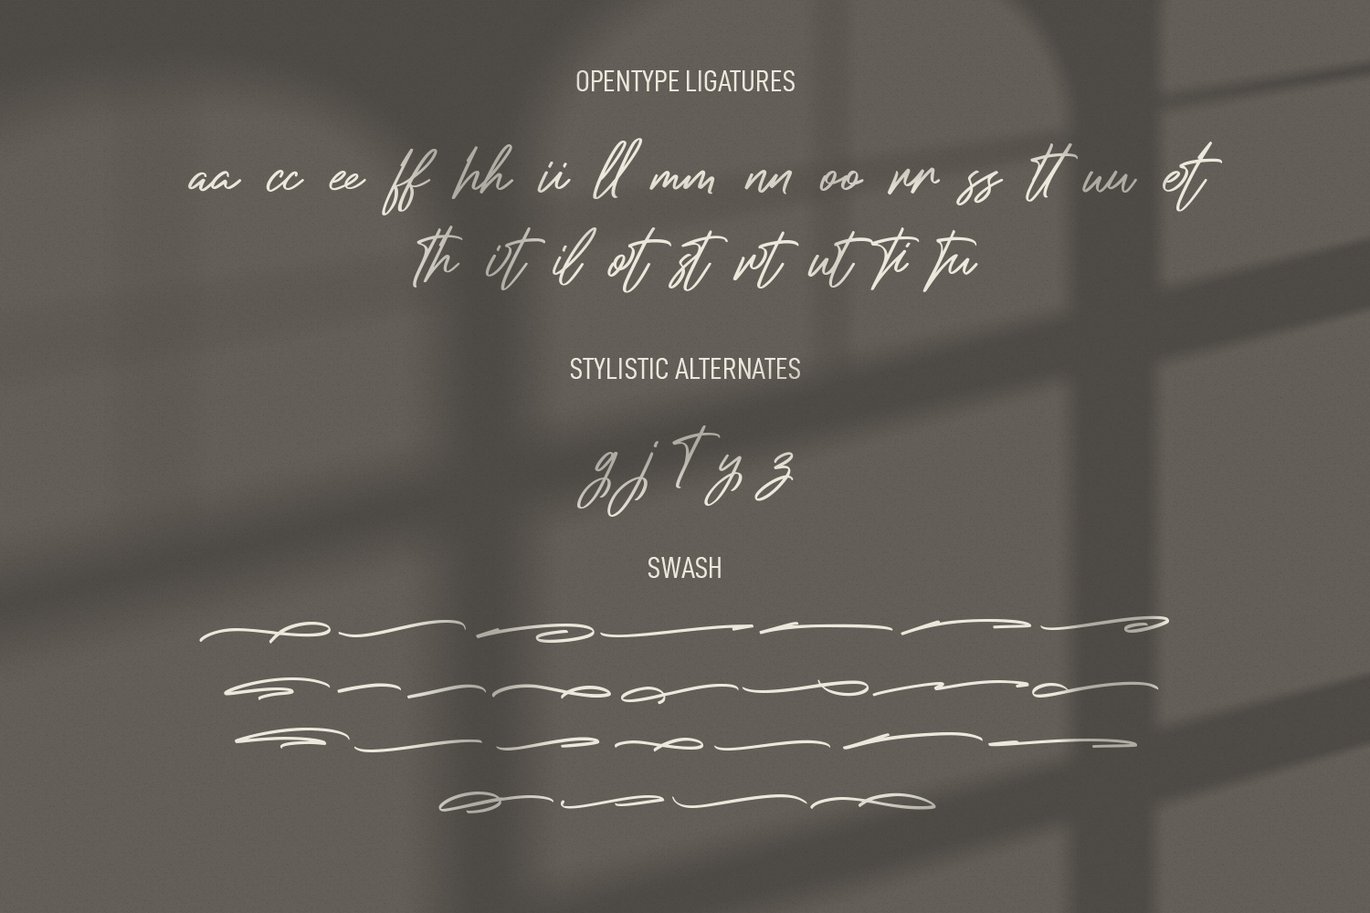 OPENTYPE LIGATURES
aa cc ee ff hh ii ll mm nn oo rr ss tt uu et
Th it il ot st rt ut Ti Tu
STYLISTIC ALTERNATES
g j T y z
SWASH